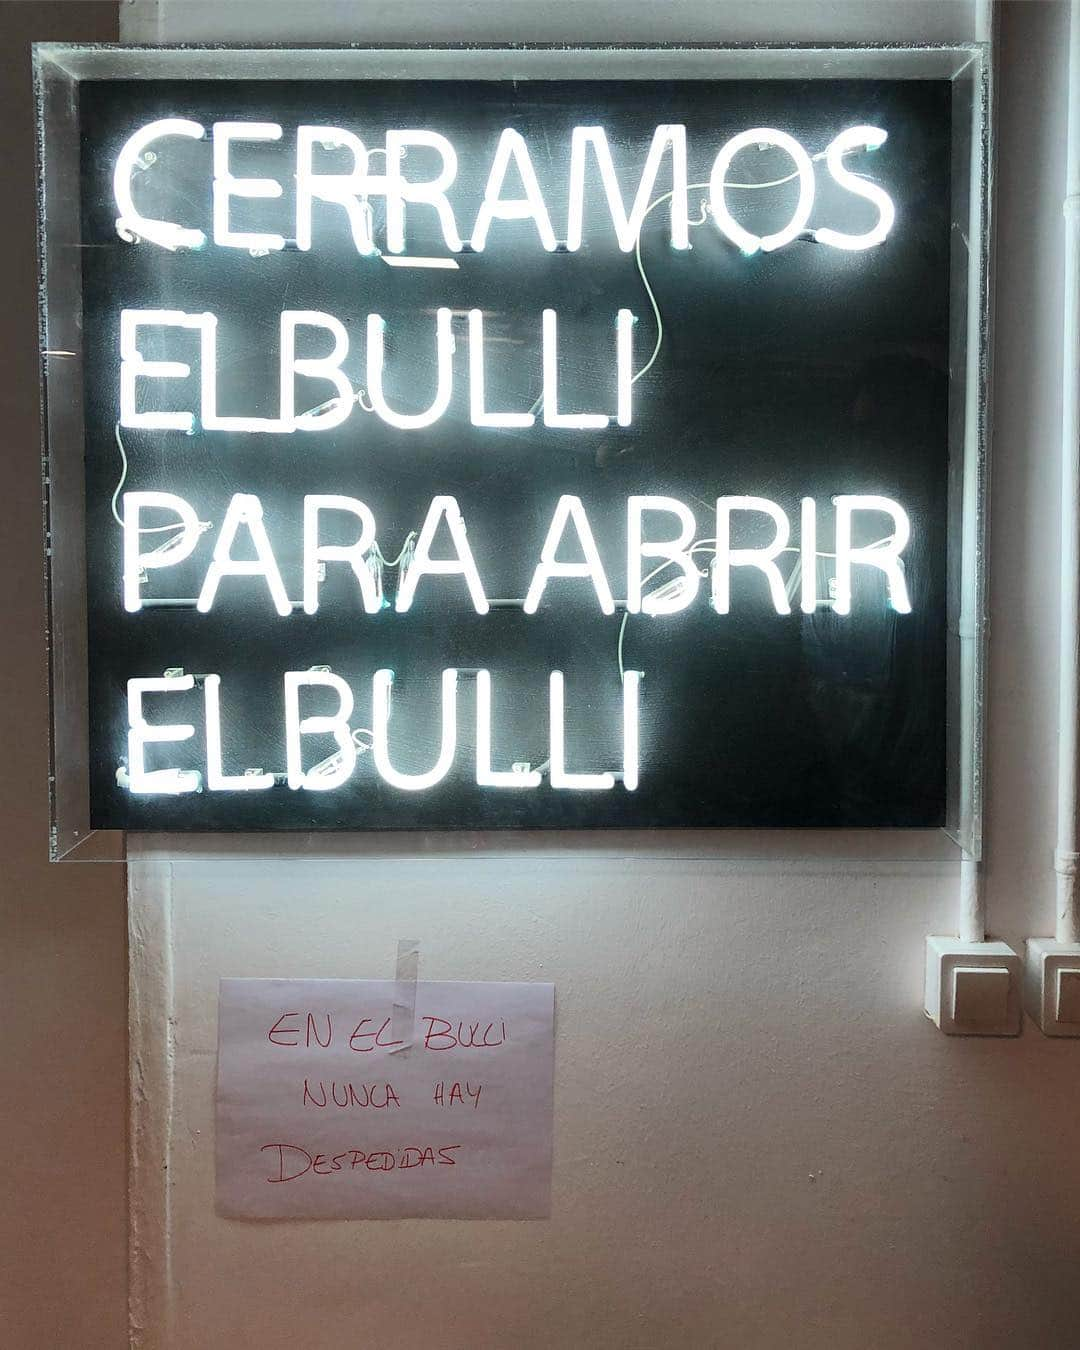 CERRAMOS
ELBULLI
PARA ABRIR
ELBULLI
EN EL BULLI
NUNCA HAY
DESPEDIDAS